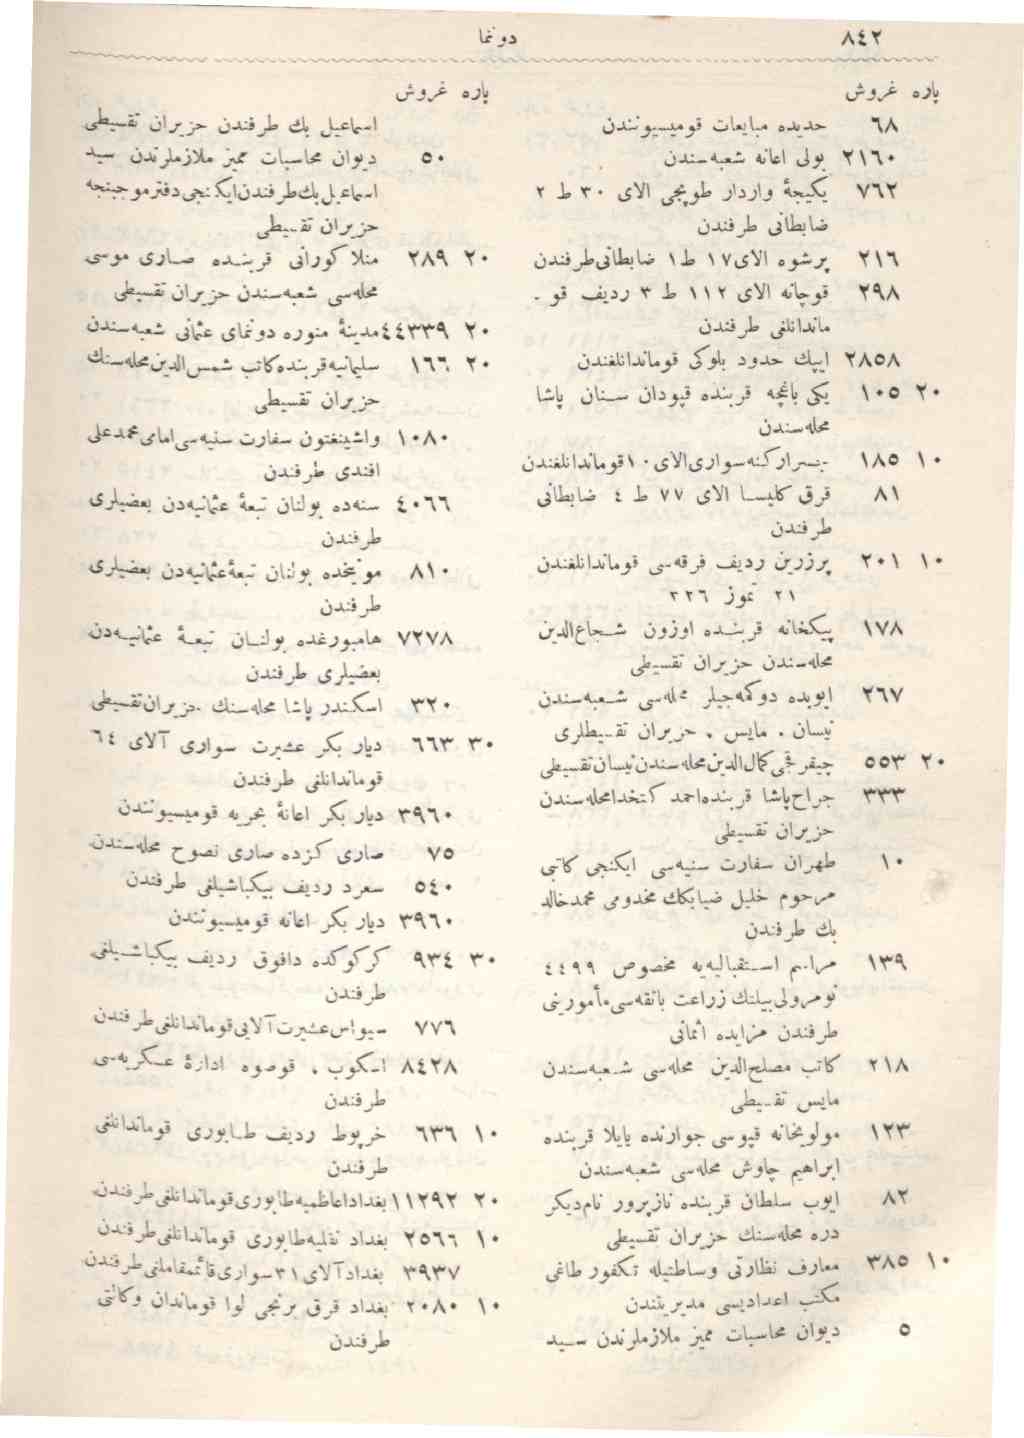 ٨٤٢
دونما
پاره غروش
٦٨ حدیده مبایعات قومیسیونندن
٢١٦٠ بولی اعانه شعبه‌سندن
٧٦٢ یکیجهٔ واردار طوپجی الای ٣٠ ط ٢
ضابطانی طرفندن
٢١٦ پرشوه الای ١٧ ط ١ ضابطانی طرفندن
٢٩٨ قوچانه الای ١١٢ ط ٣ ردیف قو -
ماندانلغی طرفندن
٢٨٥٨ ایپك حدود بلوکی قوماندانلغندن
٢٠ ١٠٥ یکی باغچه قربنده قپودان سنان پاشا
محله‌سندن
١٠ ١٨٥ سواری الای ١٠ قوماندانلغندن
٨١ قرق کلیسا الای ٧٧ ط ٤ ضابطانی
طرفندن
١٠ ٢٠١ پرزرین ردیف فرقه‌سی قوماندانلغندن
٢١ تموز ٣٢٦
١٧٨ پیکخانه قربنده اوزون شجاع‌الدین
محله‌سندن حزیران تقسیطی
٢٦٧ ایوبده دوکمه‌جیلر محله‌سی شعبه‌سندن
نیسان ، مایس ، حزیران تقسیطلری
٢٠ ٥٥٣ چیفرقجی کمال‌الدین محله‌سندن نیسان تقسیطی
٣٣٣ جراح پاشا قربنده احمد کتخدا محله‌سندن
حزیران تقسیطی
١٠ طهران سفارت سنیه‌سی ایکنجی کاتبی
مرحوم خلیل ضیابکك مخدومی محمد خالد
بك طرفندن
١٣٩ مراسم استقبالیه‌یه مخصوص ٤٤٩٩
نومرولی بیلتك زراعت بانقه‌سی مأمورینی
طرفندن مزایده اثمانی
٢١٨ کاتب مصلح‌الدین محله‌سی شعبه‌سندن
مایس تقسیطی
١٢٣ مولویخانه قپوسی جوارنده یایلا قربنده
ابراهیم چاوش محله‌سی شعبه‌سندن
٨٢ ایوب سلطان قربنده نازپرور نام دیکر
دره محله‌سنك حزیران تقسیطی
١٠ ٣٨٥ معارف نظارتی وساطتیله تکفور طاغی
مکتب اعدادیسی مدیریتندن
٥ دیوان محاسبات ممیز ملازملرندن سید
پاره غروش
اسماعیل بك طرفندن حزیران تقسیطی
٥٠ دیوان محاسبات ممیز ملازملرندن سید
اسماعیل بك طرفندن ایکنجی دفتر موجبنجه
حزیران تقسیطی
٢٠ ٢٨٩ منلا کورانی قربنده صاری موسی
محله‌سی شعبه‌سندن حزیران تقسیطی
٢٠ ٤٤٣٣٩ مدینهٔ منوره دونمای عثمانی شعبه‌سندن
٢٠ ١٦٦ سلیمانیه قربنده کاتب شمس‌الدین محله‌سنك
حزیران تقسیطی
١٠٨٠ واشینغتون سفارت سنیه‌سی امامی محمد علی
افندی طرفندن
٤٠٦٦ سنه‌ده بولنان تبعهٔ عثمانیه‌دن بعضیلری
طرفندن
٨١٠ مونیخده بولنان تبعهٔ عثمانیه‌دن بعضیلری
طرفندن
٧٢٧٨ هامبورغده بولنان تبعهٔ عثمانیه‌دن
بعضیلری طرفندن
٣٢٠ اسکندر پاشا محله‌سنك حزیران تقسیطی
٣٠ ٦٦٣ دیار بکر عشیرت سواری آلای ٦٤
قوماندانلغی طرفندن
٣٩٦٠ دیار بکر اعانهٔ بحریه قومیسیونندن
٧٥ صاری کزده صاری نصوح محله‌سندن
٥٤٠ سعرد ردیف بیکباشیلغی طرفندن
٣٩٦٠ دیار بکر اعانه قومیسیونندن
٣٠ ٩٣٤ کرکوکده داقوق ردیف بیکباشیلغی
طرفندن
٧٧٦ سیواس عشیرت آلایی قوماندانلغی طرفندن
٨٤٢٨ اسکوب ، قوصوه ادارهٔ عسکریه‌سی
طرفندن
١٠ ٦٣٦ خرپوط ردیف طابوری قوماندانلغی
طرفندن
٢٠ ١١٢٩٢ بغداد اعاظمیه طابوری قوماندانلغی طرفندن
١٠ ٢٥٦٦ بغداد نقلیه طابوری قوماندانلغی طرفندن
٣٩٣٧ بغداد آلای ٣١ سواری قائممقاملغی طرفندن
١٠ ٢٠٨٠ بغداد قرق برنجی لوا قوماندان وکالتی
طرفندن